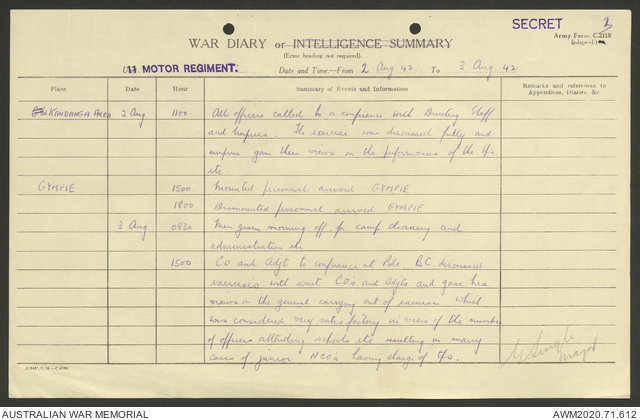 SECRET 2
Army Form C.2118
(adapted.)
WAR DIARY or INTELLIGENCE SUMMARY
(Erase heading not required).
11 MOTOR REGIMENT. Date and Time—From 2 Aug 42 To 3 Aug 42
Place Date Hour Summary of Events and Information Remarks and references to Appendices, Diaries, &c
KANDANGA AREA 2 Aug 1100 All officers called to a conference with Directing Staff
and Umpires. The exercise was discussed fully and
umpires gave their views on the performance of the tps
etc
GYMPIE 1500 Mounted personnel arrived GYMPIE
1800 Dismounted personnel arrived GYMPIE
3 Aug 0830 Men given morning off for camp cleaning and
administration etc
1500 CO and Adjt to conference at Bde. BC discussed
exercises with unit CO's and Adjts and gave his
views on the general carrying out of exercises which
was considered very satisfactory in view of the number
of officers attending schools etc resulting in many
cases of junior NCO's having charge of tps.
Major
AUSTRALIAN WAR MEMORIAL AWM2020.71.612